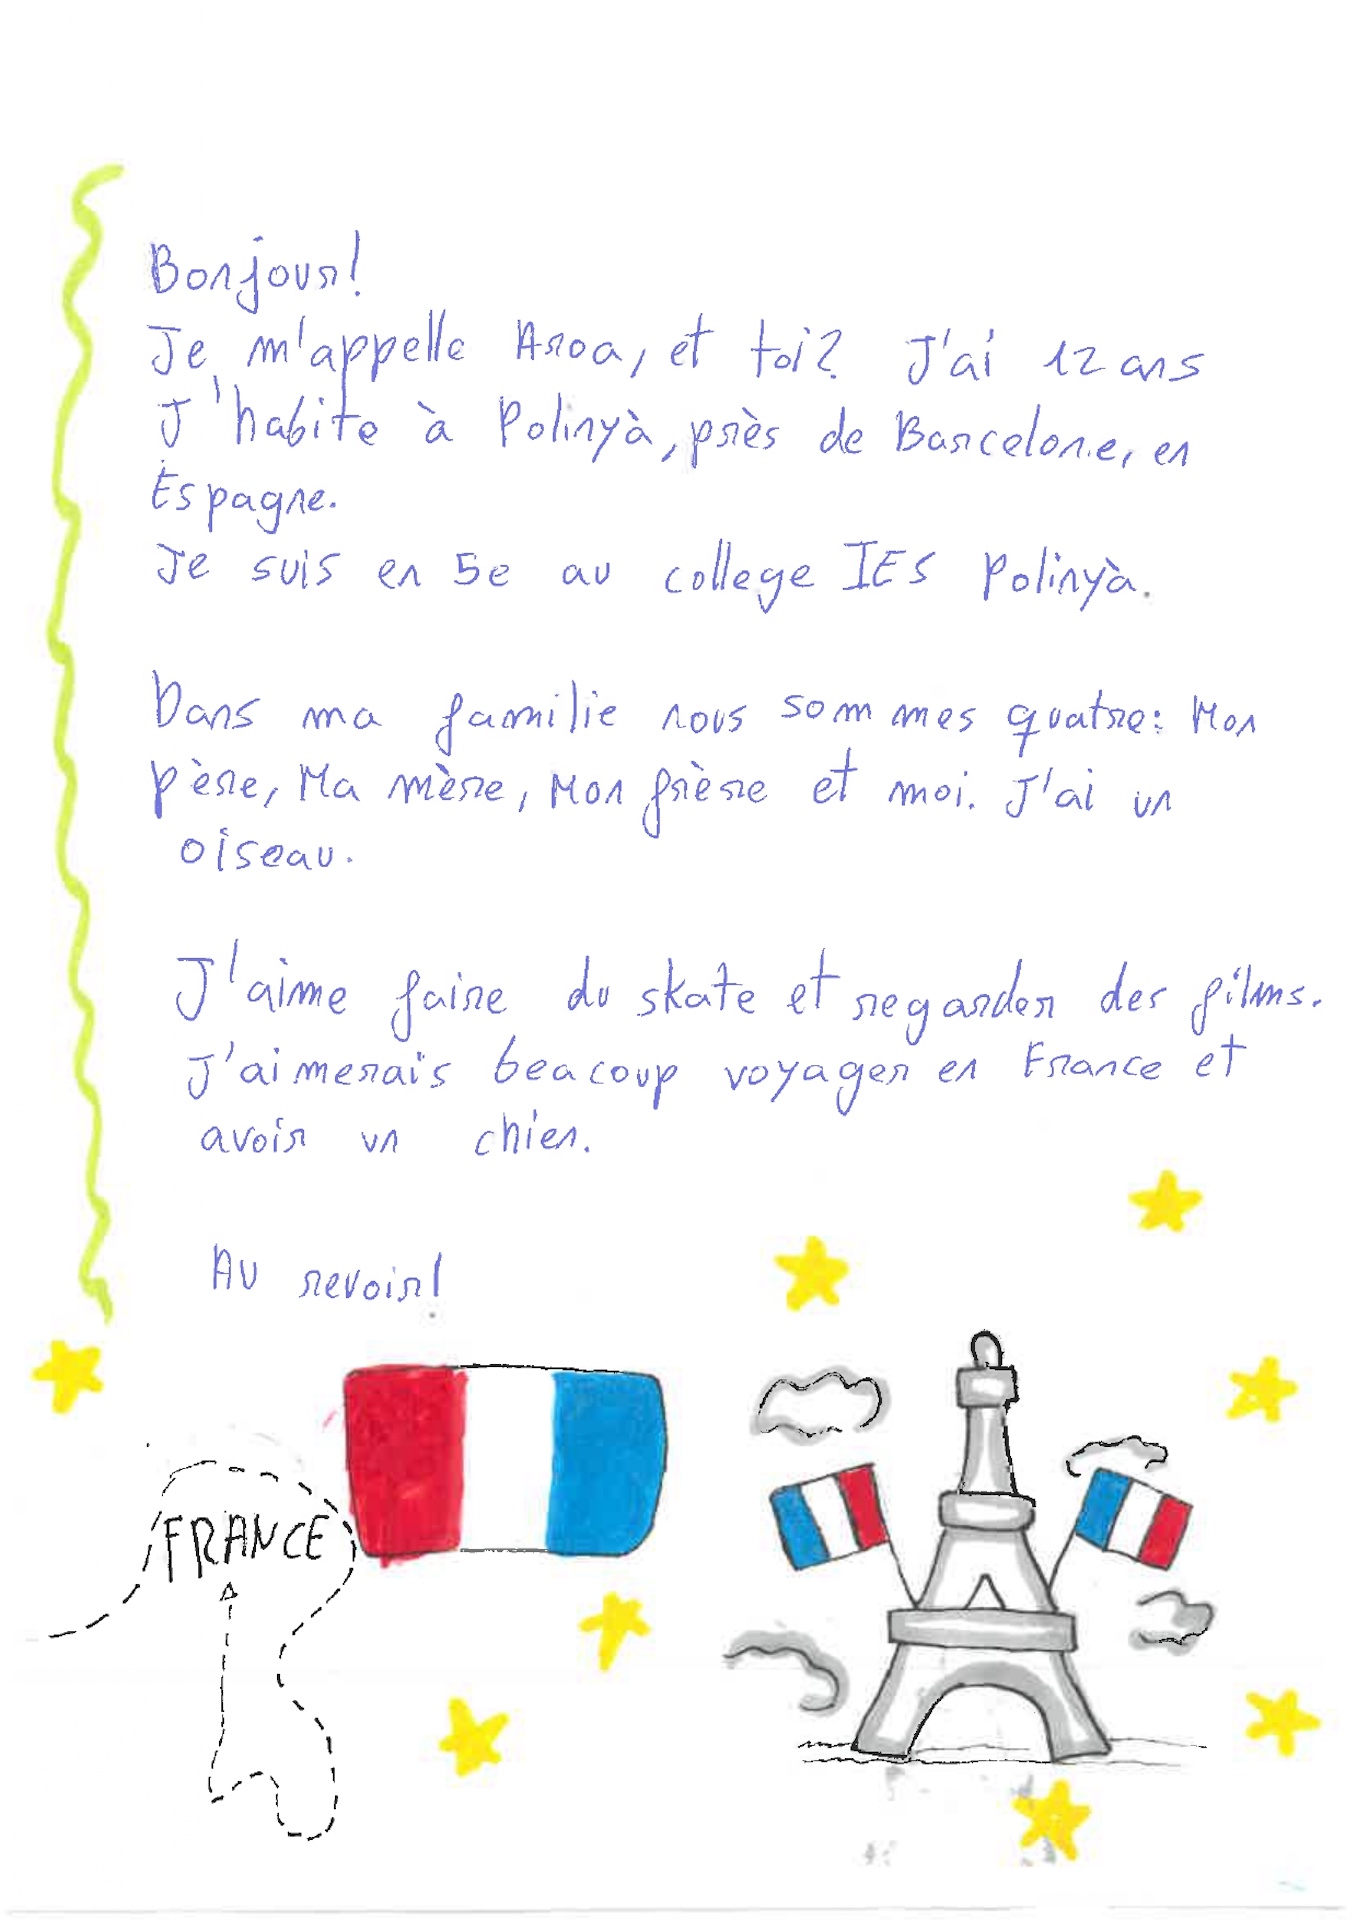 Bonjour!
Je m'appelle Aroa, et toi? J'ai 12 ans
J'habite à Polinyà, près de Barcelone, en
Espagne.
Je suis en 5e au college IES Polinyà.
Dans ma familie nous sommes quatre: Mon
père, Ma mère, Mon frère et moi. J'ai un
oiseau.
J'aime faire du skate et regarder des films.
J'aimerais beaucoup voyager en France et
avoir un chien.
Au revoir!
FRANCE